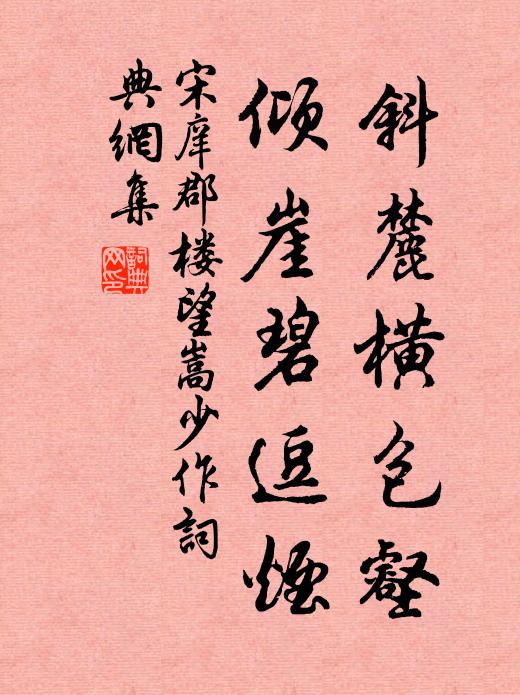 斜麓横包壑
倾崖碧逗烟
宋庠郡楼望嵩少作词
典网集
词典网印